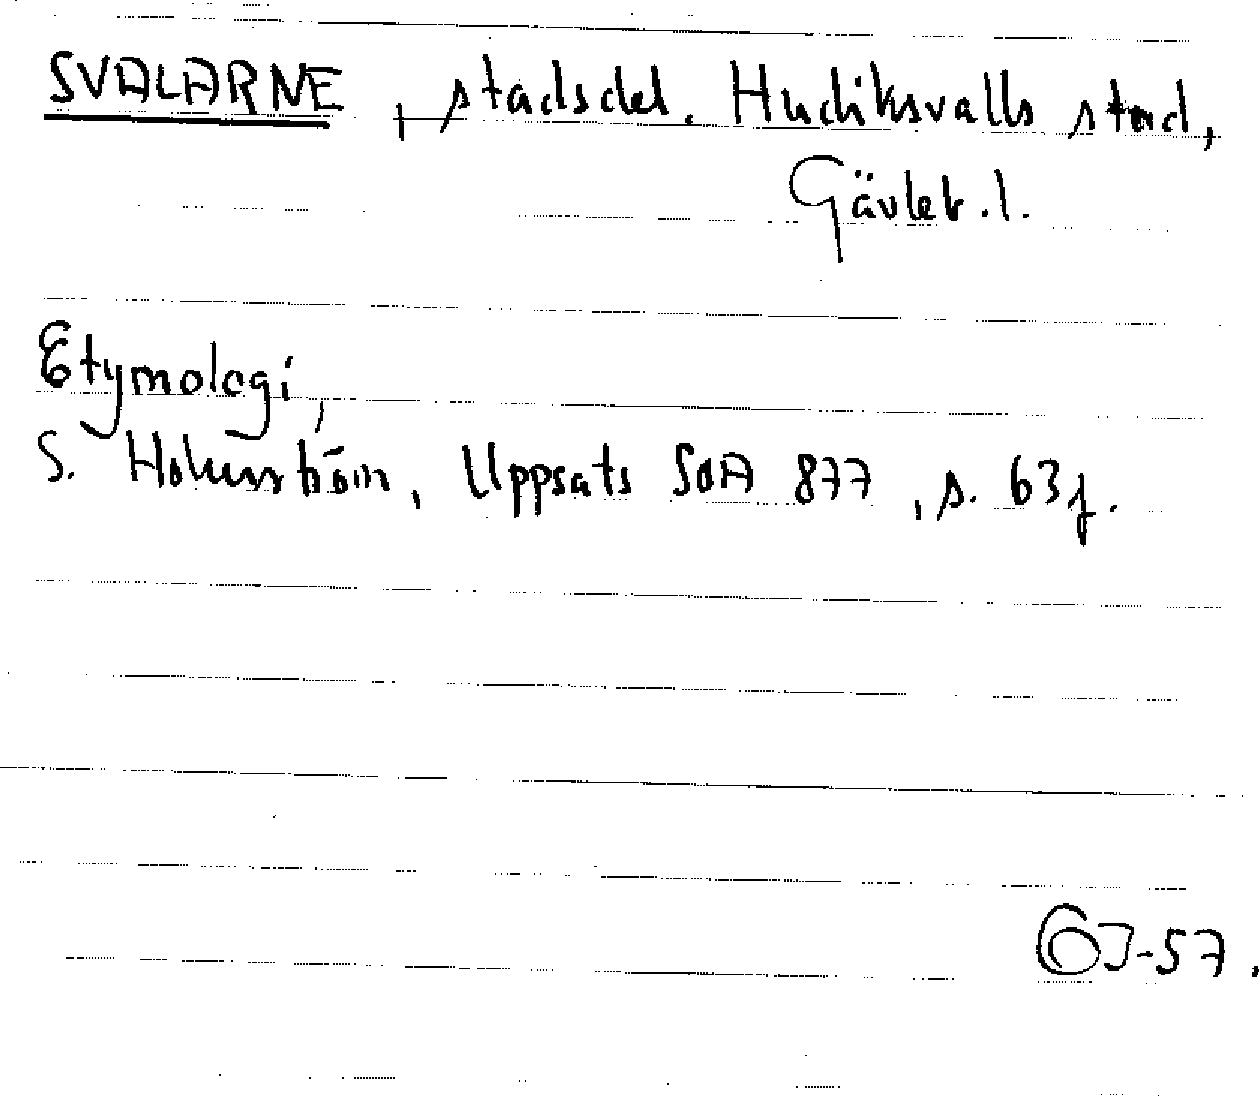 SVALARNE, stadsdel. Hudiksvalls stad,
Gävleb. l.
Etymologi,
S. Holmström, Uppsats SOA 877, s. 63 f.
GJ-57.